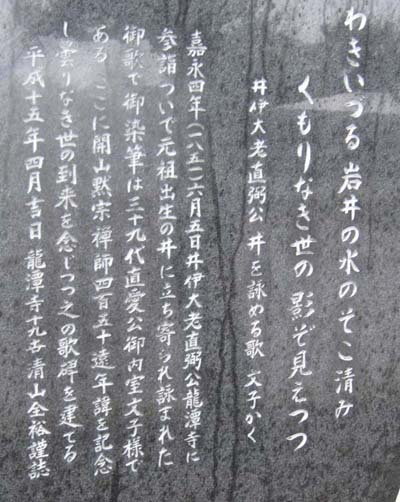 わきいづる 岩井の水のそこ清み
くもりなき世の 影ぞ見えつつ
井伊大老直弼公 井を詠める歌 文子かく
嘉永四年(一八五一)六月五日井伊大老直弼公龍潭寺に
参詣ついで元祖出生の井に立ち寄られ詠まれた
御歌で御染筆は三十九代直愛公御内室文子様で
ある ここに開山黙宗禅師四百五十遠年諱を記念
し雲りなき世の到来を念じつつ之の歌碑を建てる
平成十五年四月吉日 龍潭寺十九世 清山全裕謹誌